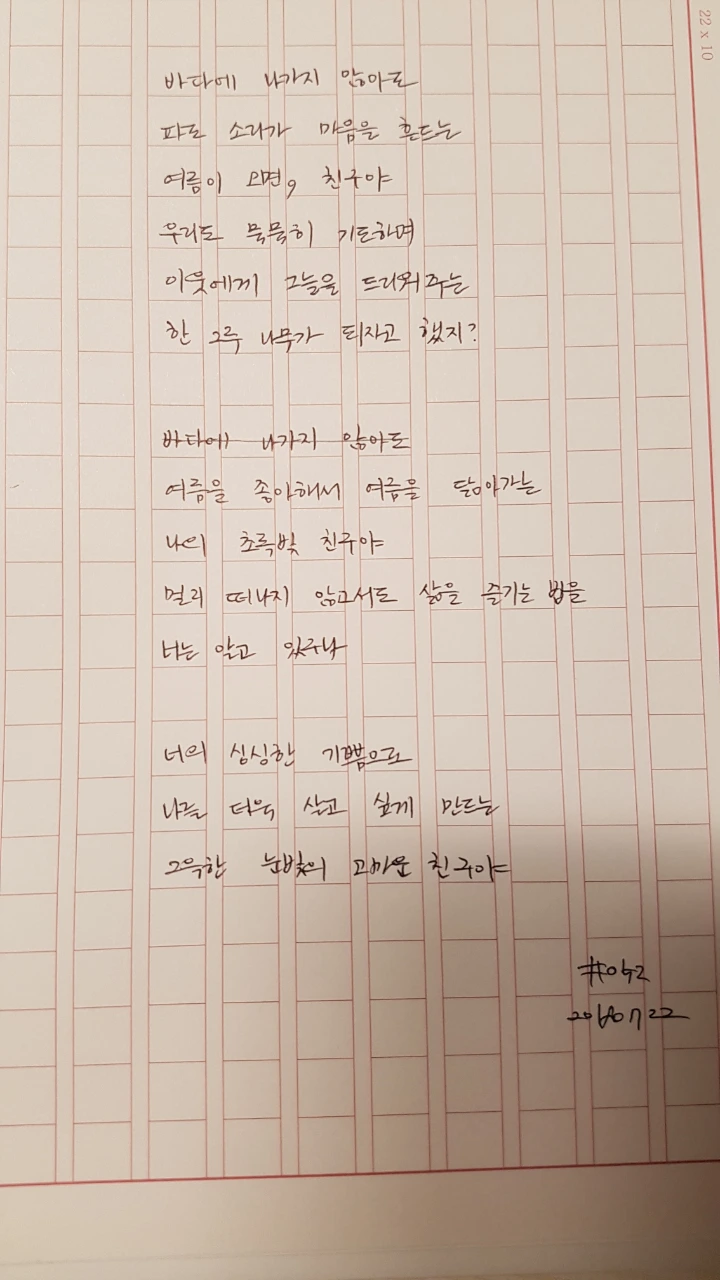 22 x 10
바다에 나가지 않아도
파도 소리가 마음을 흔드는
여름이 오면, 친구야
우리도 묵묵히 기도하며
이웃에게 그늘을 드리워주는
한 그루 나무가 되자고 했지?
바다에 나가지 않아도
여름을 좋아해서 여름을 닮아가는
나의 초록빛 친구야
멀리 떠나지 않고서도 삶을 즐기는 법을
너는 알고 있구나
너의 싱싱한 기쁨으로
나를 더욱 살고 싶게 만드는
그윽한 눈빛의 고마운 친구야
#042